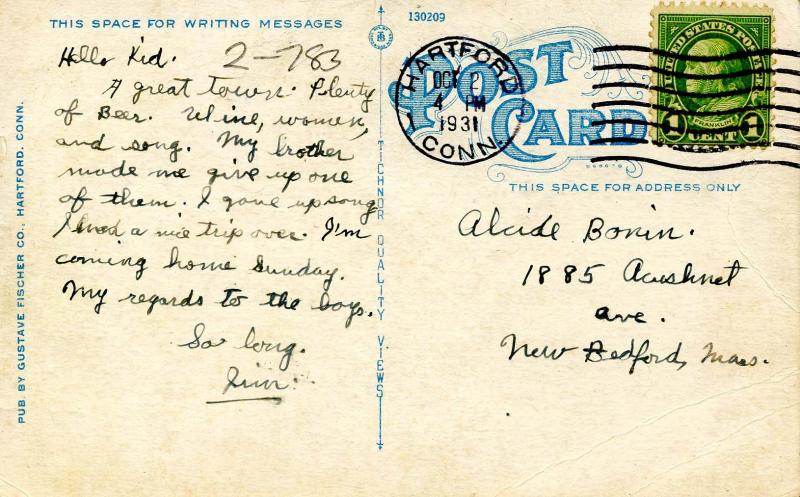 THIS SPACE FOR WRITING MESSAGES
2-783
Hello Kid.
A great town. Plenty
of Beer. Wine, women,
and song. My brother
made me give up one
of them. I gave up song
I had a nice trip over. I'm
coming home Sunday.
My regards to the boys.
So long.
Jim.
PUB. BY GUSTAVE FISCHER CO., HARTFORD, CONN.
TICHNOR QUALITY VIEWS
130209
POST CARD
HARTFORD
OCT 2
4 PM
1931
CONN.
UNITED STATES POSTAGE
FRANKLIN
1 CENT 1
THIS SPACE FOR ADDRESS ONLY
Alcide Bonin.
1885 Acushnet
ave.
New Bedford, Mass.